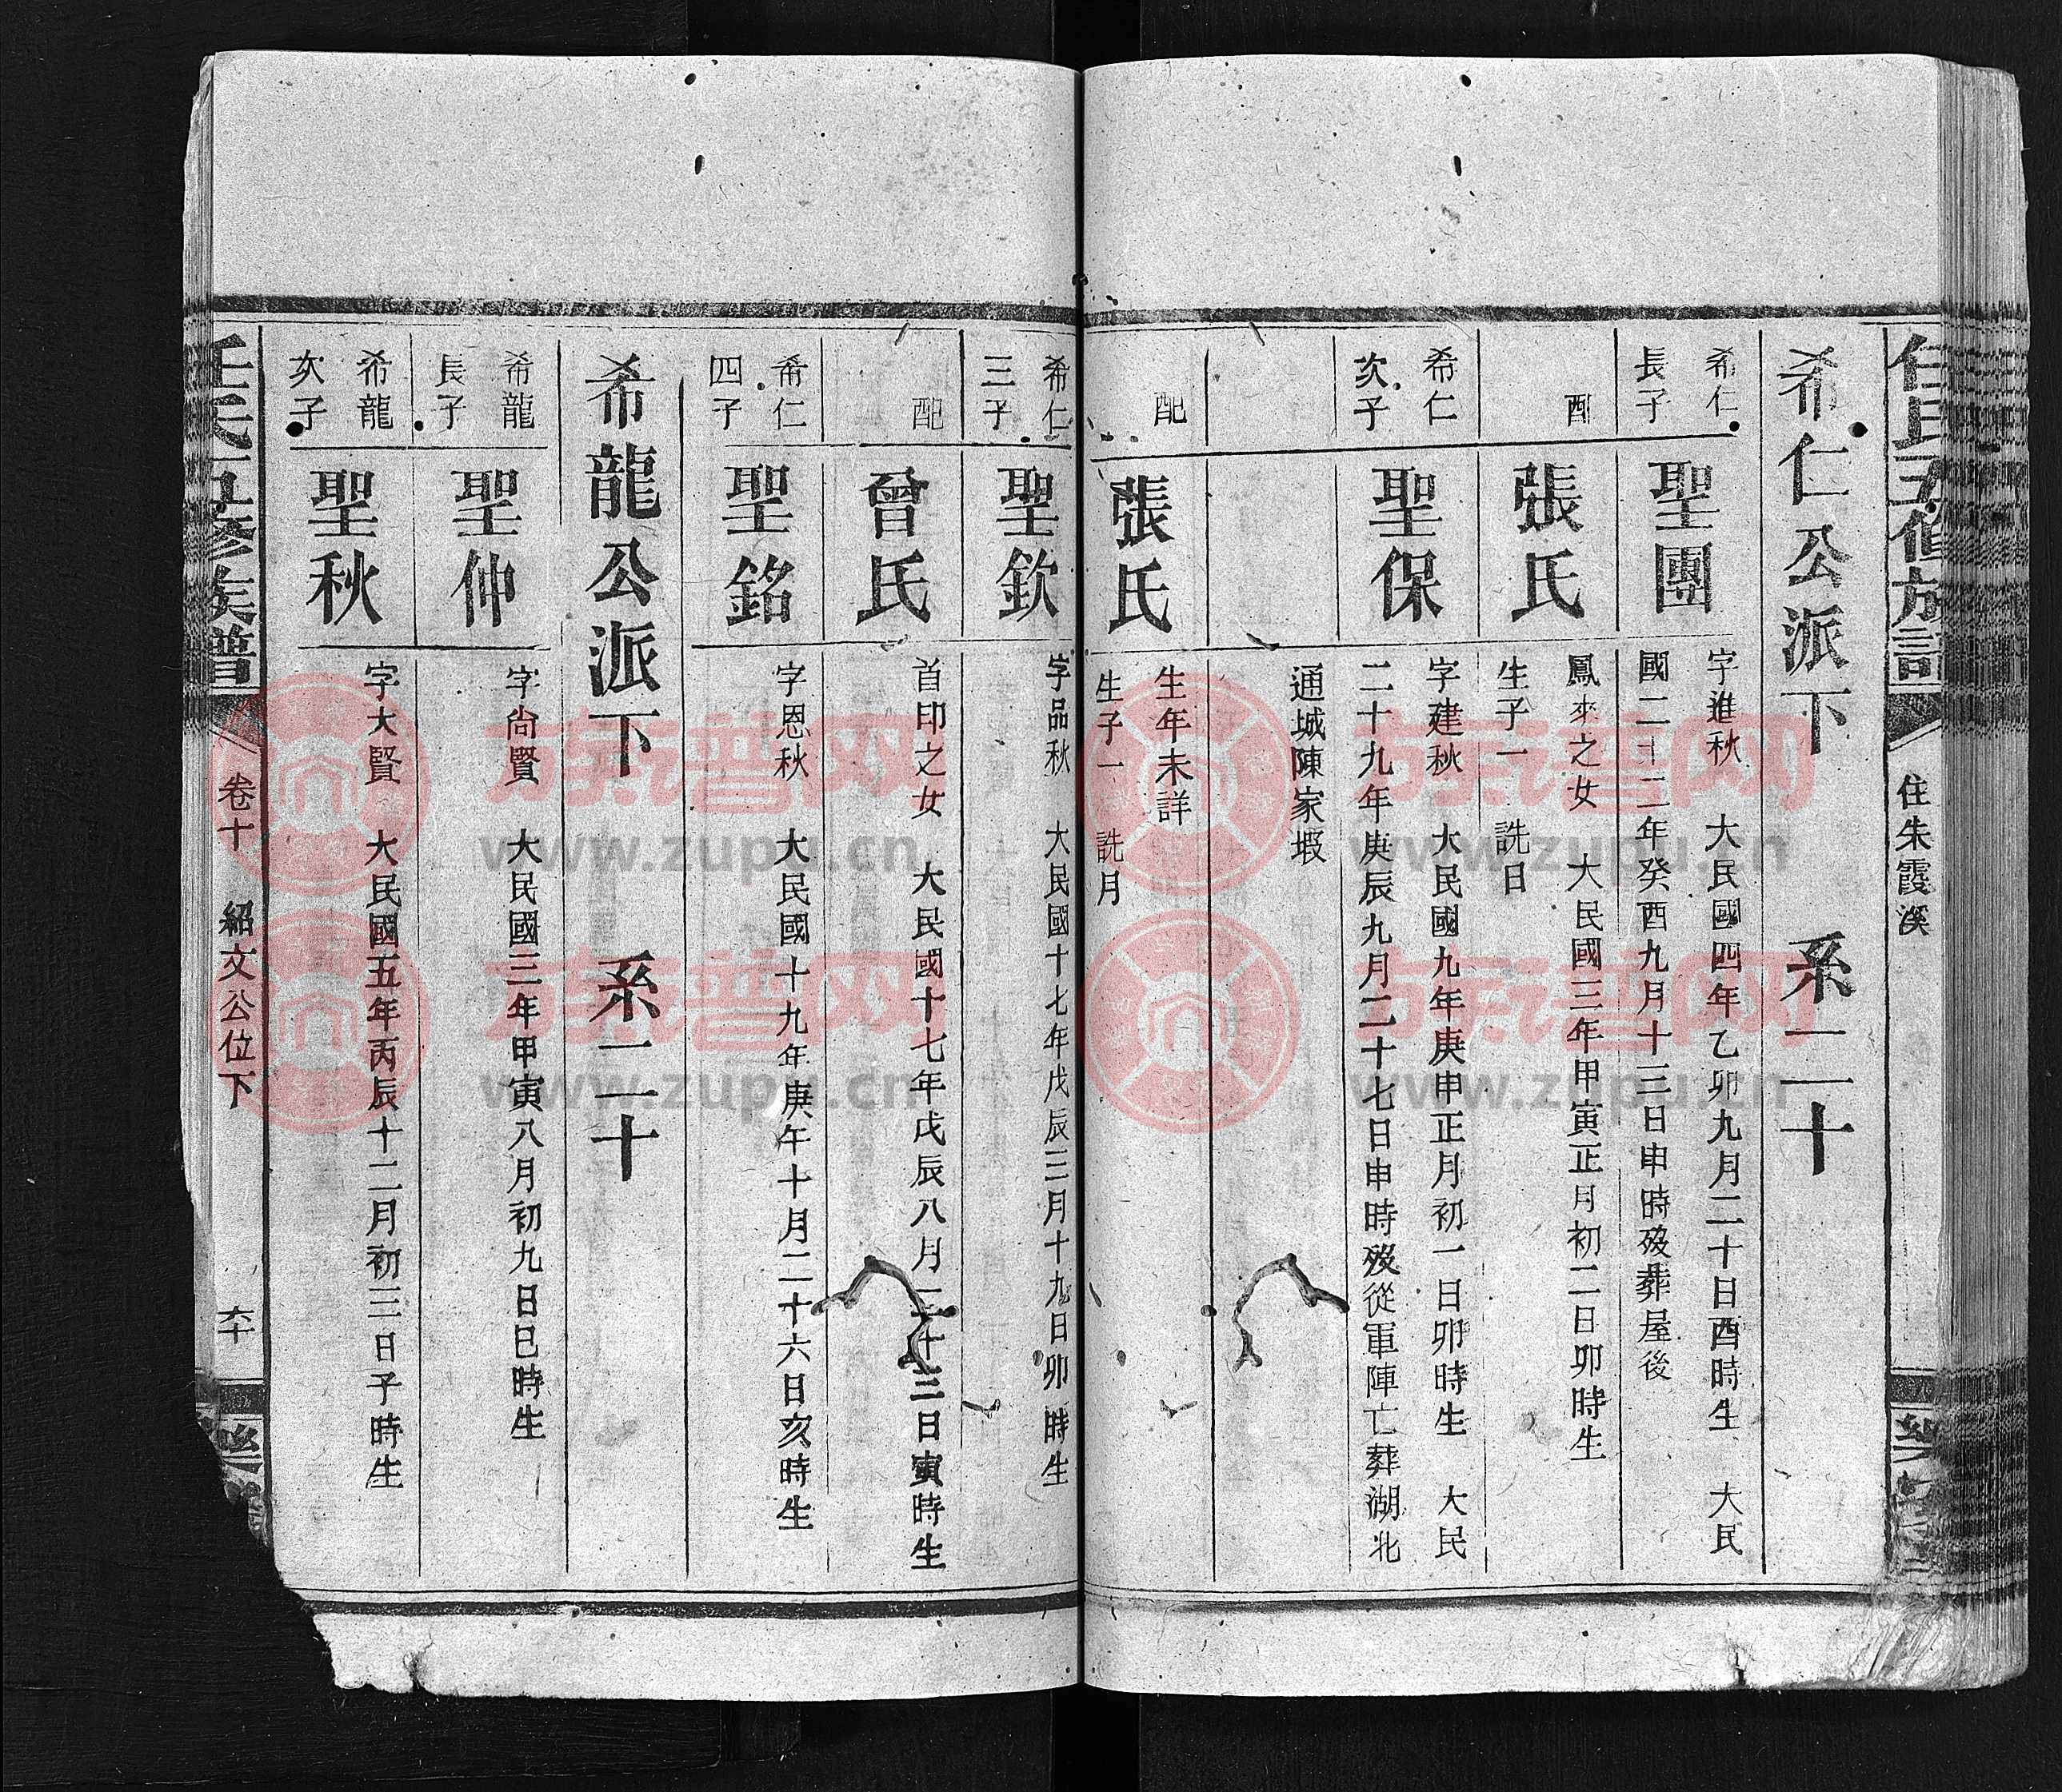 任氏五修族譜
住朱霞溪
希仁公派下 系二十
希仁
長子
聖團
字進秋 大民國四年乙卯九月二十日酉時生 大民
國二十二年癸酉九月十三日申時歿葬屋後
配
張氏
鳳來之女 大民國三年甲寅正月初二日卯時生
生子一 詵日
希仁
次子
聖保
字建秋 大民國九年庚申正月初一日卯時生 大民
二十九年庚辰九月二十七日申時歿從軍陣亡葬湖北
通城陳家塅
配
張氏
生年未詳
生子一 詵月
希仁
三子
聖欽
字品秋 大民國十七年戊辰三月十九日卯時生
配
曾氏
首印之女 大民國十七年戊辰八月二十三日寅時生
希仁
四子
聖銘
字恩秋 大民國十九年庚午十月二十六日亥時生
希龍公派下 系二十
希龍
長子
聖仲
字尙賢 大民國三年甲寅八月初九日巳時生
希龍
次子
聖秋
字大賢 大民國五年丙辰十二月初三日子時生
任氏五修族譜
卷十 紹文公位下
六十
族譜网
www.zupu.cn
族譜网
www.zupu.cn
族譜网
www.zupu.cn
族譜网
www.zupu.cn